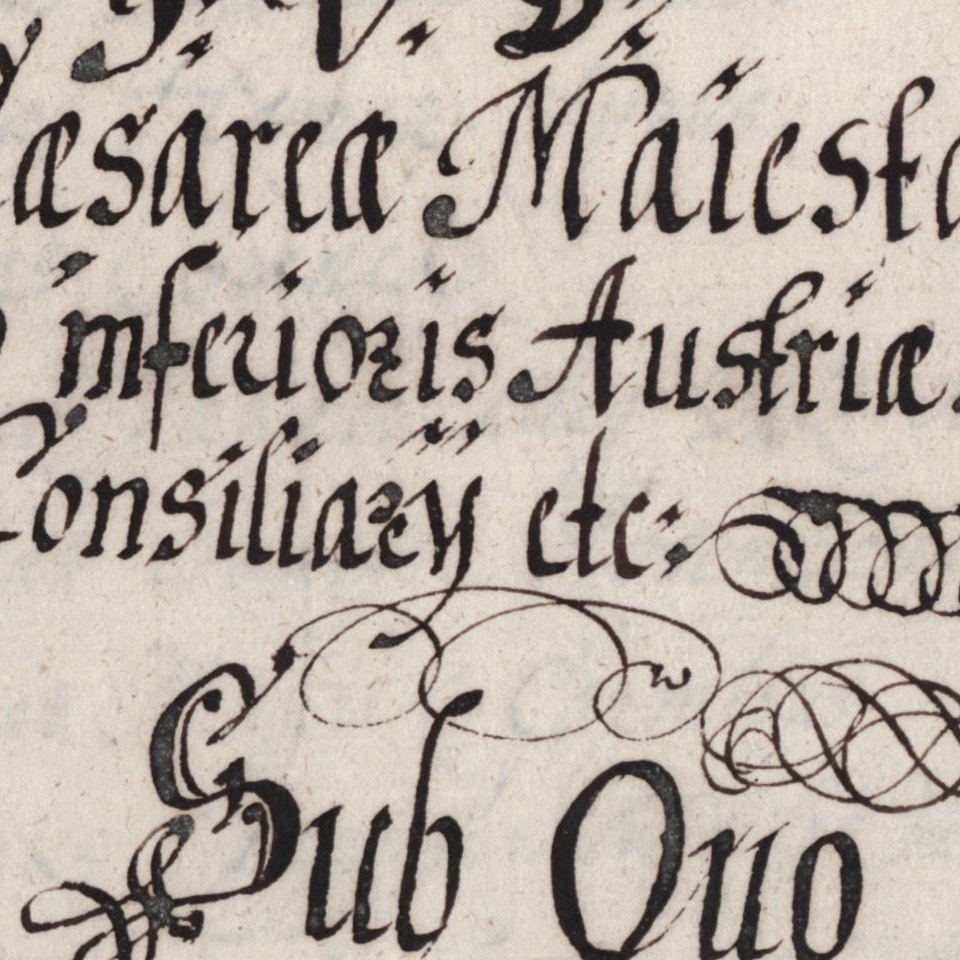 J. V. D.
æsareæ Maiesta
inferioris Austriæ.
Consiliarij etc:
Sub Quo